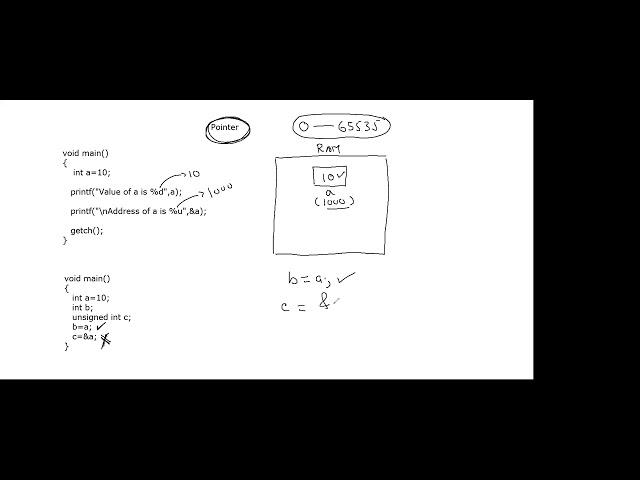 Pointer
0 — 65535
void main()
{
int a=10;
printf("Value of a is %d",a);
10
printf("\nAddress of a is %u",&a);
1000
getch();
}
RAM
10
a
(1000)
b=a;
c = &
void main()
{
int a=10;
int b;
unsigned int c;
b=a;
c=&a;
}